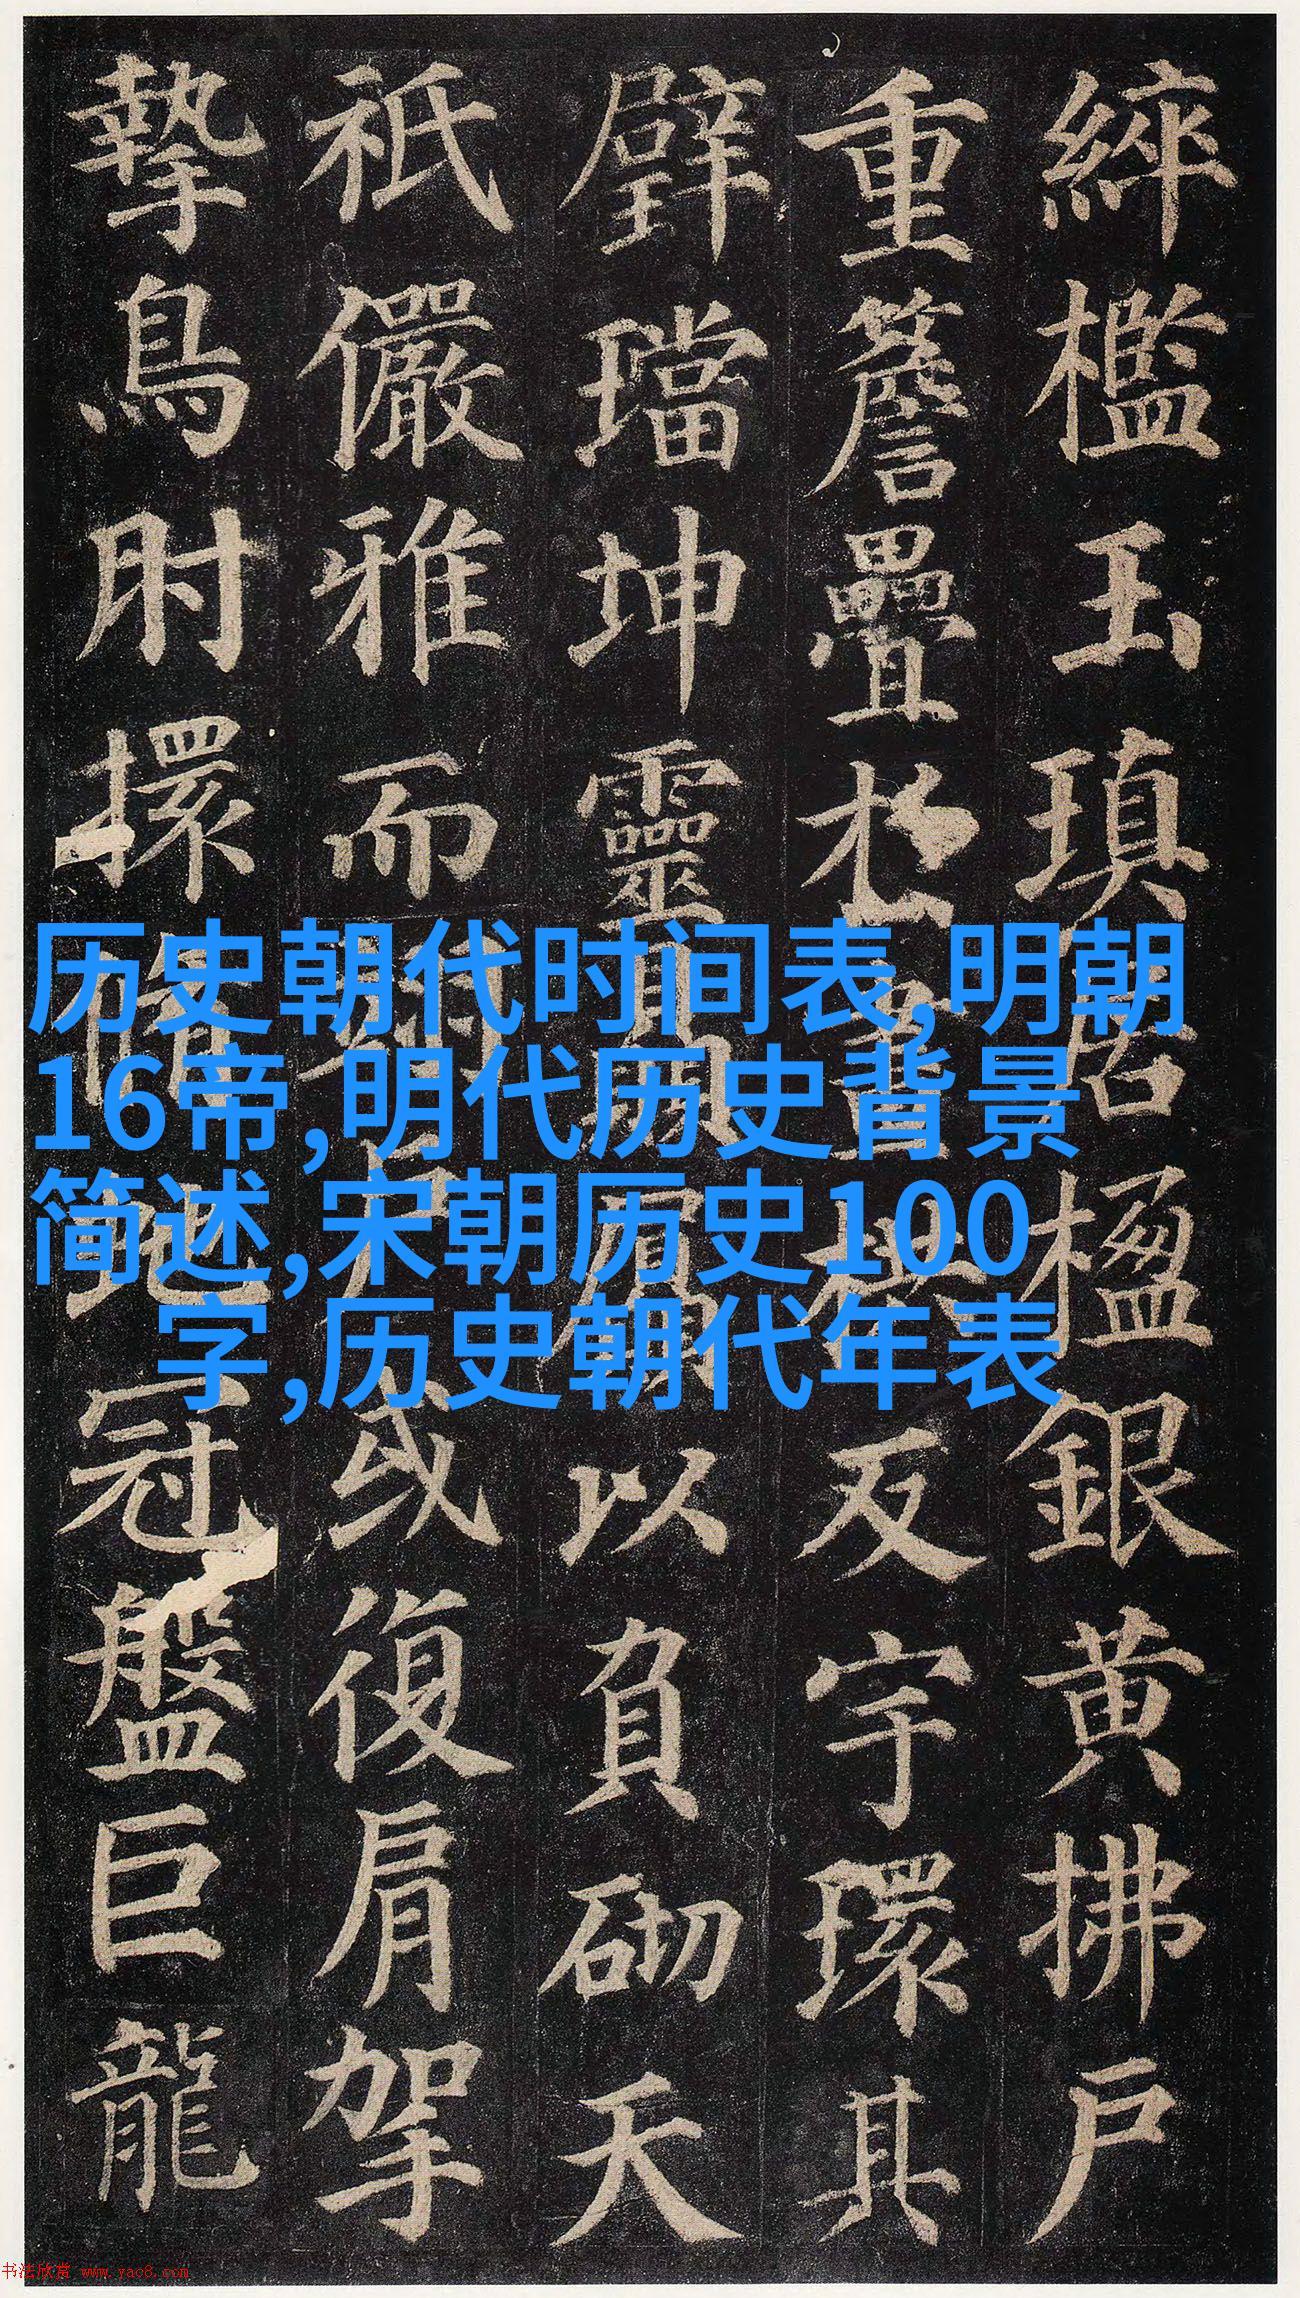 綷檻玉瑱居楹銀黄拂戶
重簷疊於畫栱反宇環其
壁璫坤靈贔屓以負砌天
祇儼雅而翊戶或復肩挐
摯鳥肘擐脩虵冠盤巨龍
历史朝代时间表,明朝
16帝,明代历史背景
简述,宋朝历史100
字,历史朝代年表
书法欣赏 www.yac8.com